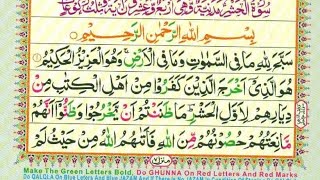 سُوْرَةُ الْحَشْرِ مَدَنِيَّةٌ وَّهِىَ
بِسْمِ اللّٰهِ الرَّحْمٰنِ الرَّحِيْمِ
سَبَّحَ لِلّٰهِ مَا فِى السَّمٰوٰتِ وَمَا فِى الْاَرْضِ ۚ وَهُوَ الْعَزِيْزُ الْحَكِيْمُ
هُوَ الَّذِىْۤ اَخْرَجَ الَّذِيْنَ كَفَرُوْا مِنْ اَهْلِ الْكِتٰبِ مِنْ
دِيَارِهِمْ لِاَوَّلِ الْحَشْرِ ؔ مَا ظَنَنْتُمْ اَنْ يَّخْرُجُوْا وَظَنُّوْۤا اَنَّهُمْ
مَّانِعَتُهُمْ حُصُوْنُهُمْ مِّنَ اللّٰهِ فَاَتٰىهُمُ اللّٰهُ مِنْ حَيْثُ لَمْ
Make The Green Letters Bold, Do GHUNNA On Red Letters And Red Marks
Do QALQLA On Blue Letters And Blue JAZAM And